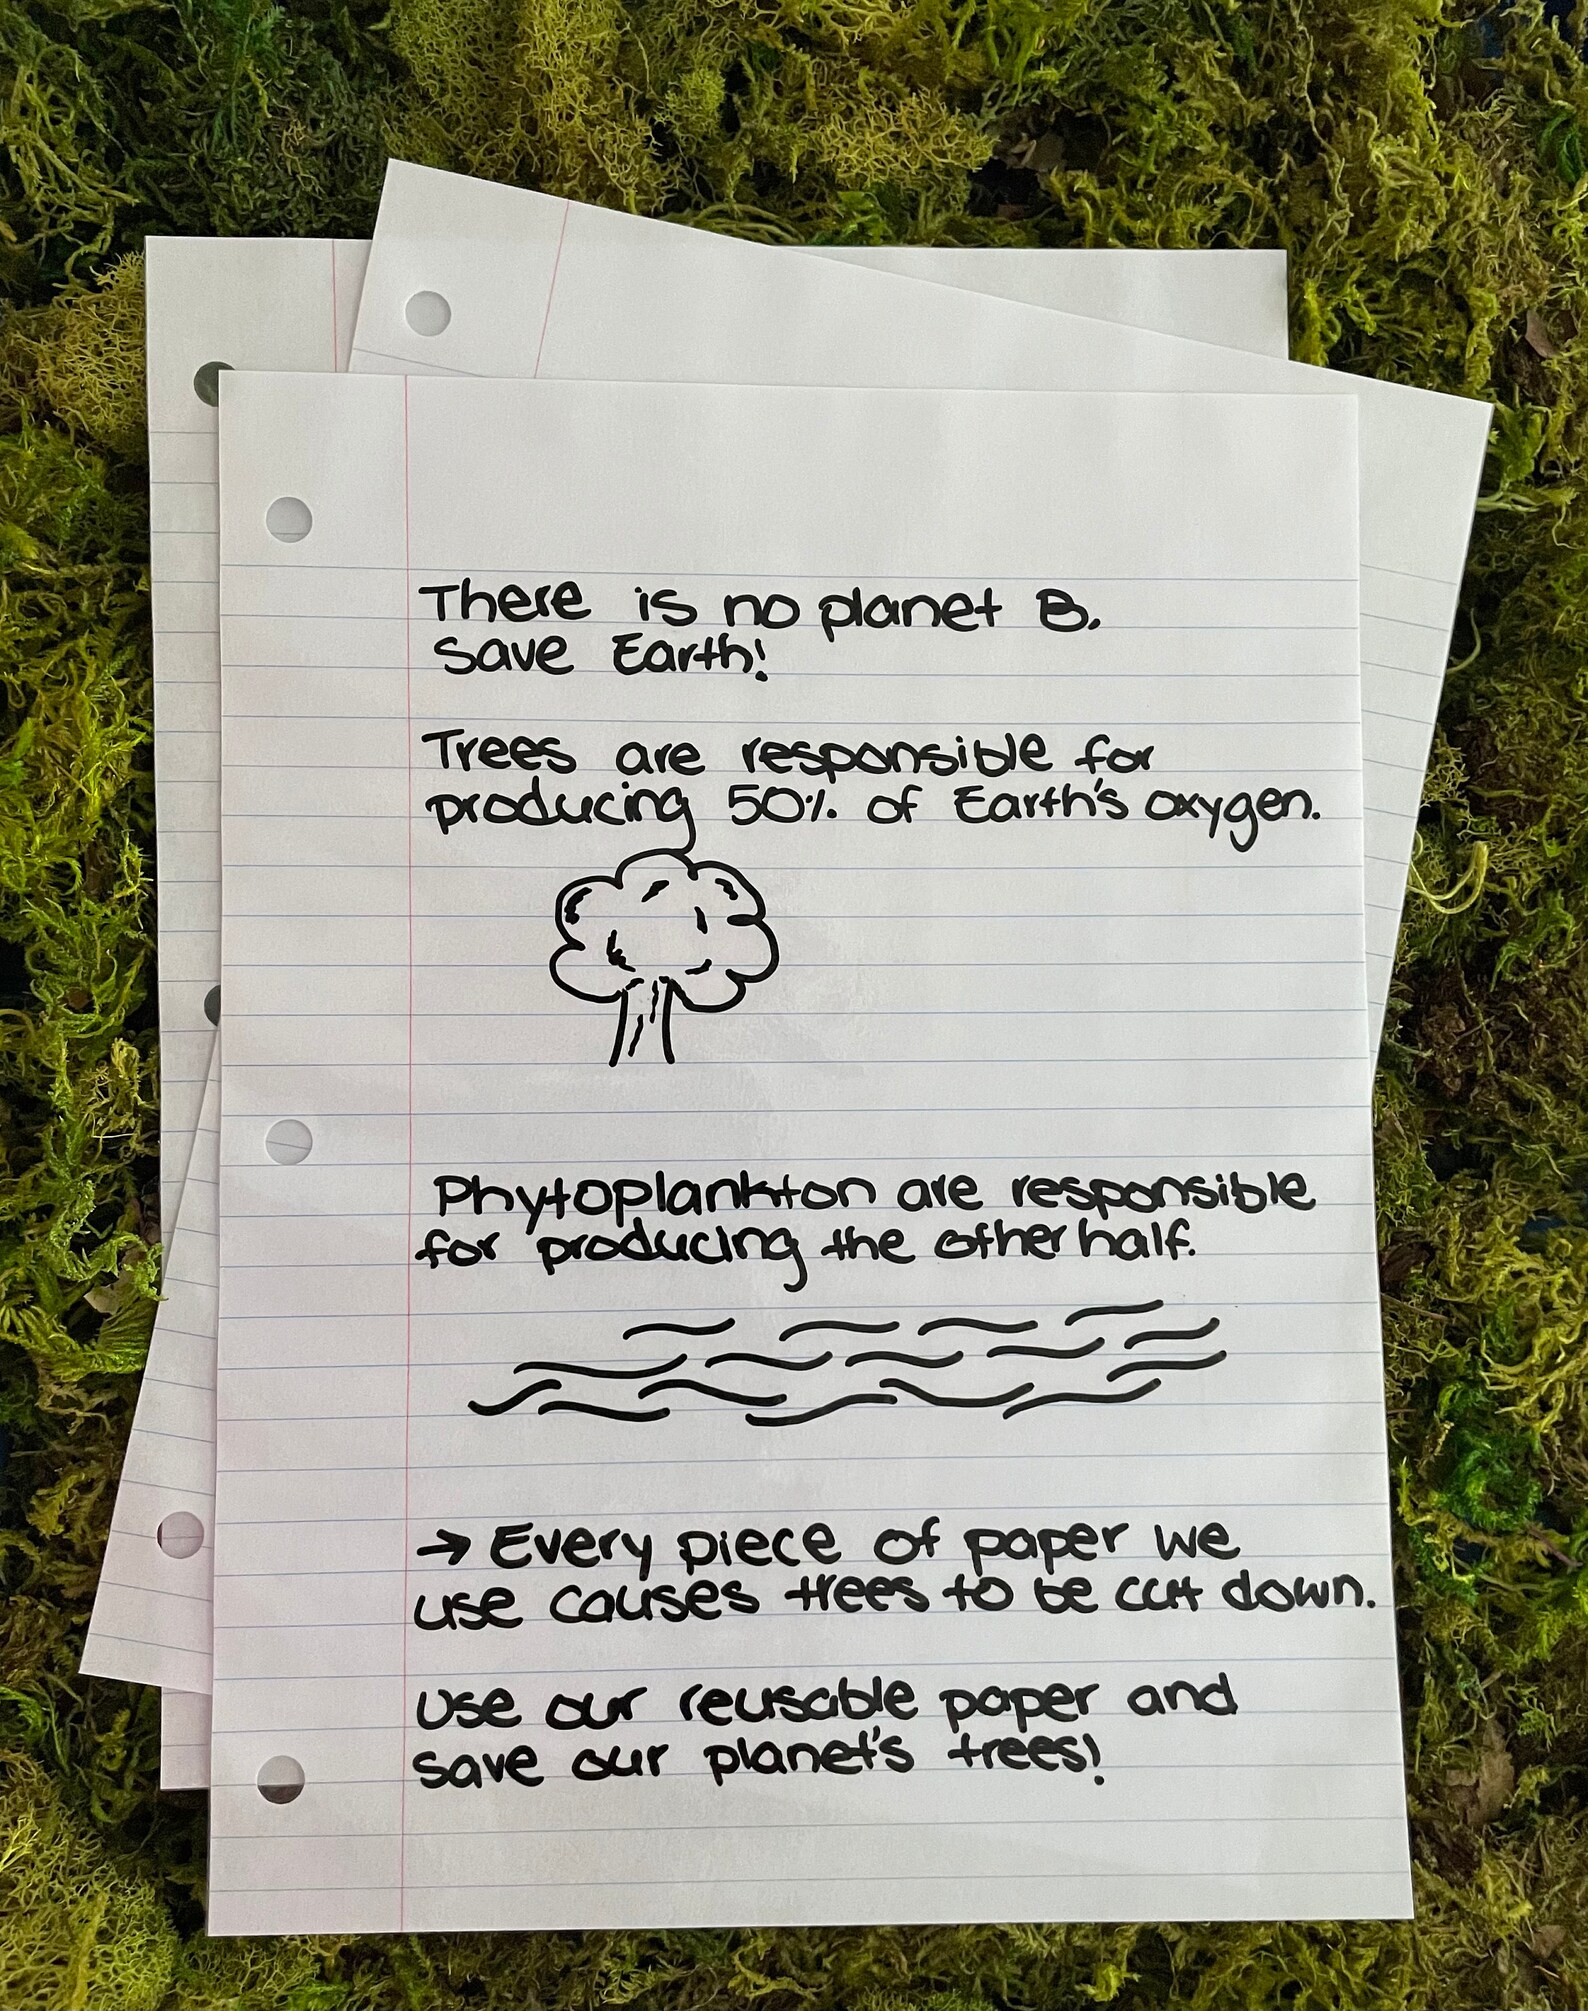 There is no planet B.
Save Earth!
Trees are responsible for
producing 50% of Earth's oxygen.
Phytoplankton are responsible
for producing the other half.
→ Every piece of paper we
use causes trees to be cut down.
Use our reusable paper and
save our planet's trees!